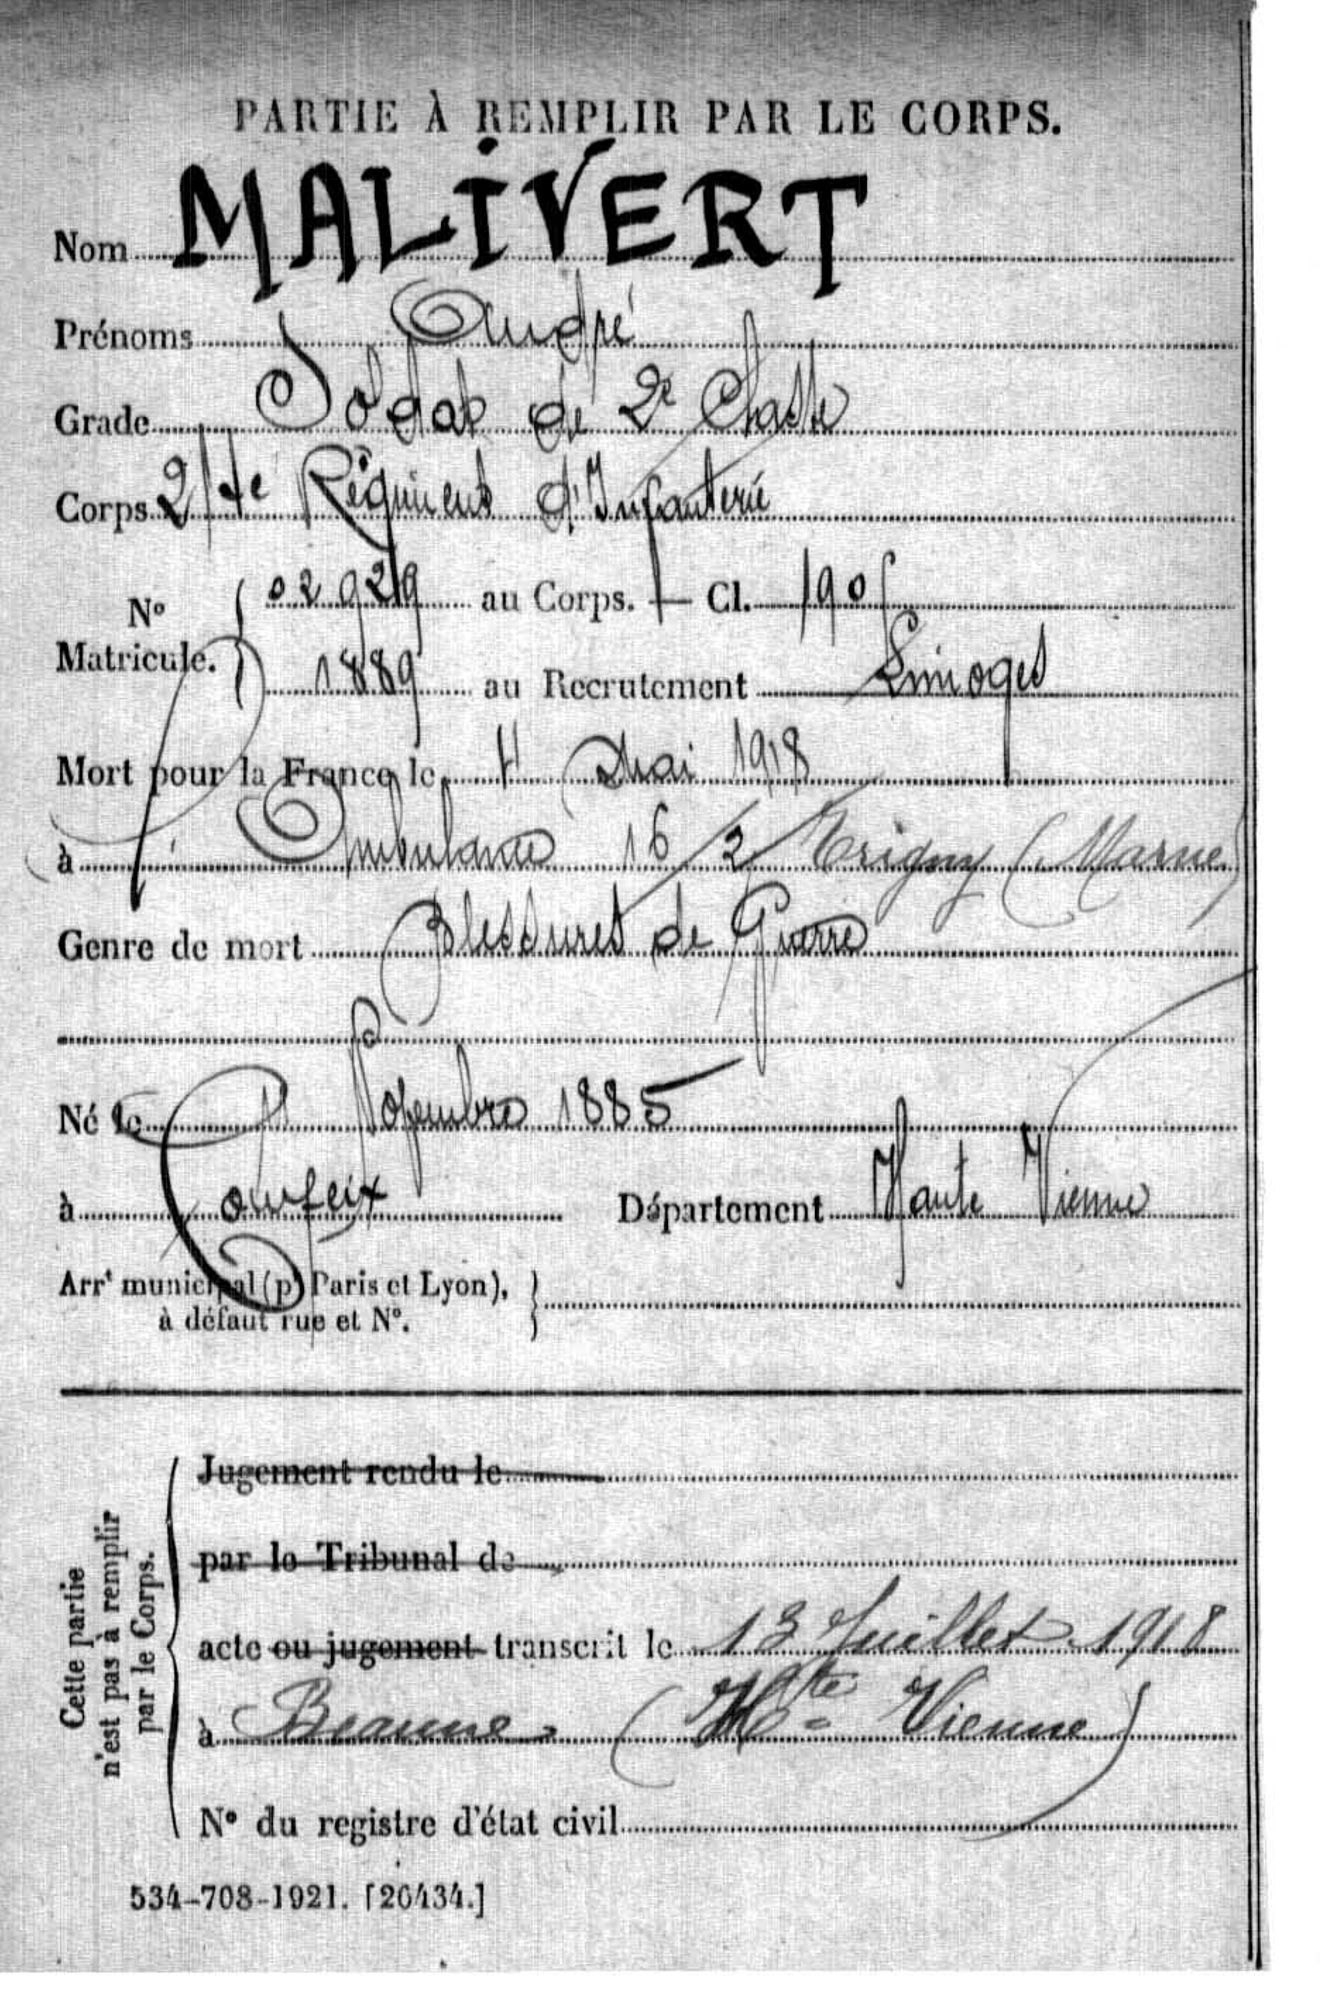 PARTIE À REMPLIR PAR LE CORPS.
Nom MALIVERT
Prénoms André
Grade Soldat de 2e Classe
Corps Régiment d'Infanterie
No Matricule. { 02929 au Corps. — Cl. 1905
1889 au Recrutement Limoges
Mort pour la France le Mai 1918
à Ambulance 16/2 Trigny (Marne)
Genre de mort Blessures de Guerre
Né le Novembre 1885
à Couzeix Département Haute Vienne
Arrt municipal (pr Paris et Lyon), }
à défaut rue et N°.
Cette partie
n'est pas à remplir
par le Corps.
Jugement rendu le
par le Tribunal de
acte ou jugement transcrit le 13 Juillet 1918
à Beaune (Hte Vienne)
N° du registre d'état civil
534-708-1921. [26434.]